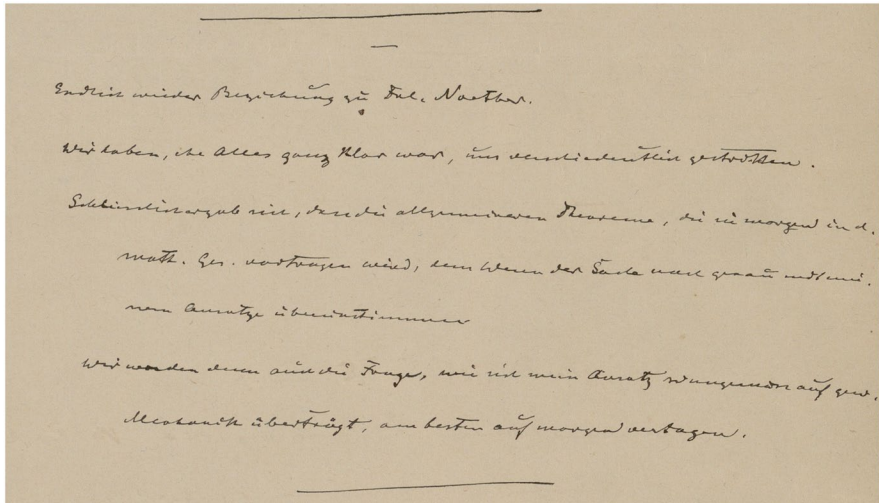 Endlich wieder Beziehung zu Frl. Noether.
Wir haben, ehe Alles ganz klar war, uns verschiedentlich gestritten.
Schliesslich ergab sich, dass die allgemeineren Theoreme, die sie morgen in d.
math. Ges. vortragen wird, dem Wesen der Sache nach genau mit mei-
nem Ansatze übereinstimmen
Wir werden denn auch die Frage, wie sich mein Ansatz sinngemäss auf gew.
Mechanik überträgt, am besten auf morgen vertagen.